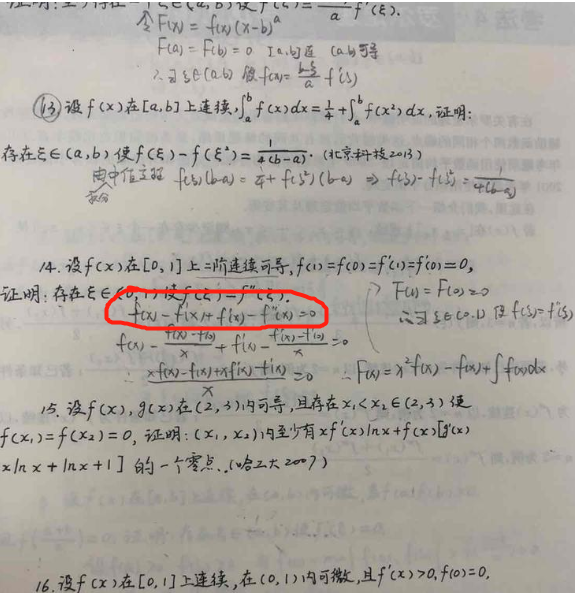 令F(x)=f(x)(x-b)^a
F(a)=F(b)=0 [a,b]连 (a,b)可导
∴∃ξ∈(a,b) 使f(x)=\frac{b-ξ}{a}f'(ξ)
⑬设f(x)在[a,b]上连续,∫_a^b f(x)dx=\frac{1}{4}+∫_a^b f(x²)dx,证明:
存在ξ∈(a,b)使f(ξ)-f(ξ²)=\frac{1}{4(b-a)}.(北京科技2013)
由中值定理 f(ξ)(b-a)=\frac{1}{4}+f(ξ²)(b-a) ⇒ f(ξ)-f(ξ²)=\frac{1}{4(b-a)}
积分
14.设f(x)在[0,1]上二阶连续可导,f(1)=f(0)=f'(1)=f'(0)=0,
证明:存在ξ∈(0,1)使f(ξ)=f''(ξ).
f(x)-f'(x)+f'(x)-f''(x)=0
F(1)=F(0)=0
∴∃ξ∈(0,1)使f(ξ)=f'(ξ)
f(x)-\frac{f(x)-f(0)}{x}+f'(x)-\frac{f'(x)-f'(0)}{x}=0
\frac{xf(x)-f(x)+xf'(x)-f'(x)}{x}=0 ∴F(x)=x²f(x)-f(x)+∫f(x)dx
15.设f(x),g(x)在(2,3)内可导,且存在x₁<x₂∈(2,3)使
f(x₁)=f(x₂)=0,证明:(x₁,x₂)内至少有xf'(x)lnx+f(x)[g'(x)
xlnx+lnx+1]的一个零点.(哈工大2007)
16.设f(x)在[0,1]上连续,在(0,1)内可微,且f'(x)>0,f(0)=0,